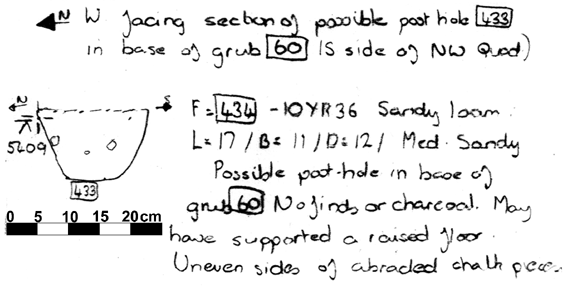 N W facing section of possible post hole 433
in base of grub 60 (S side of NW Quad)
N S
5409
433
0 5 10 15 20cm
F = 434 - 10YR36 Sandy loam.
L = 17 / B = 11 / D = 12 / Med. Sandy
Possible post-hole in base of
grub 60 No finds or charcoal. May
have supported a raised floor.
Uneven sides of abraded chalk pieces.